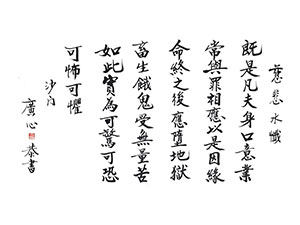 慈悲水懺
既是凡夫身口意業
常與罪相應以是因緣
命終之後應墮地獄
畜生餓鬼受無量苦
如此實為可驚可恐
可怖可懼
沙門
廣心
恭書